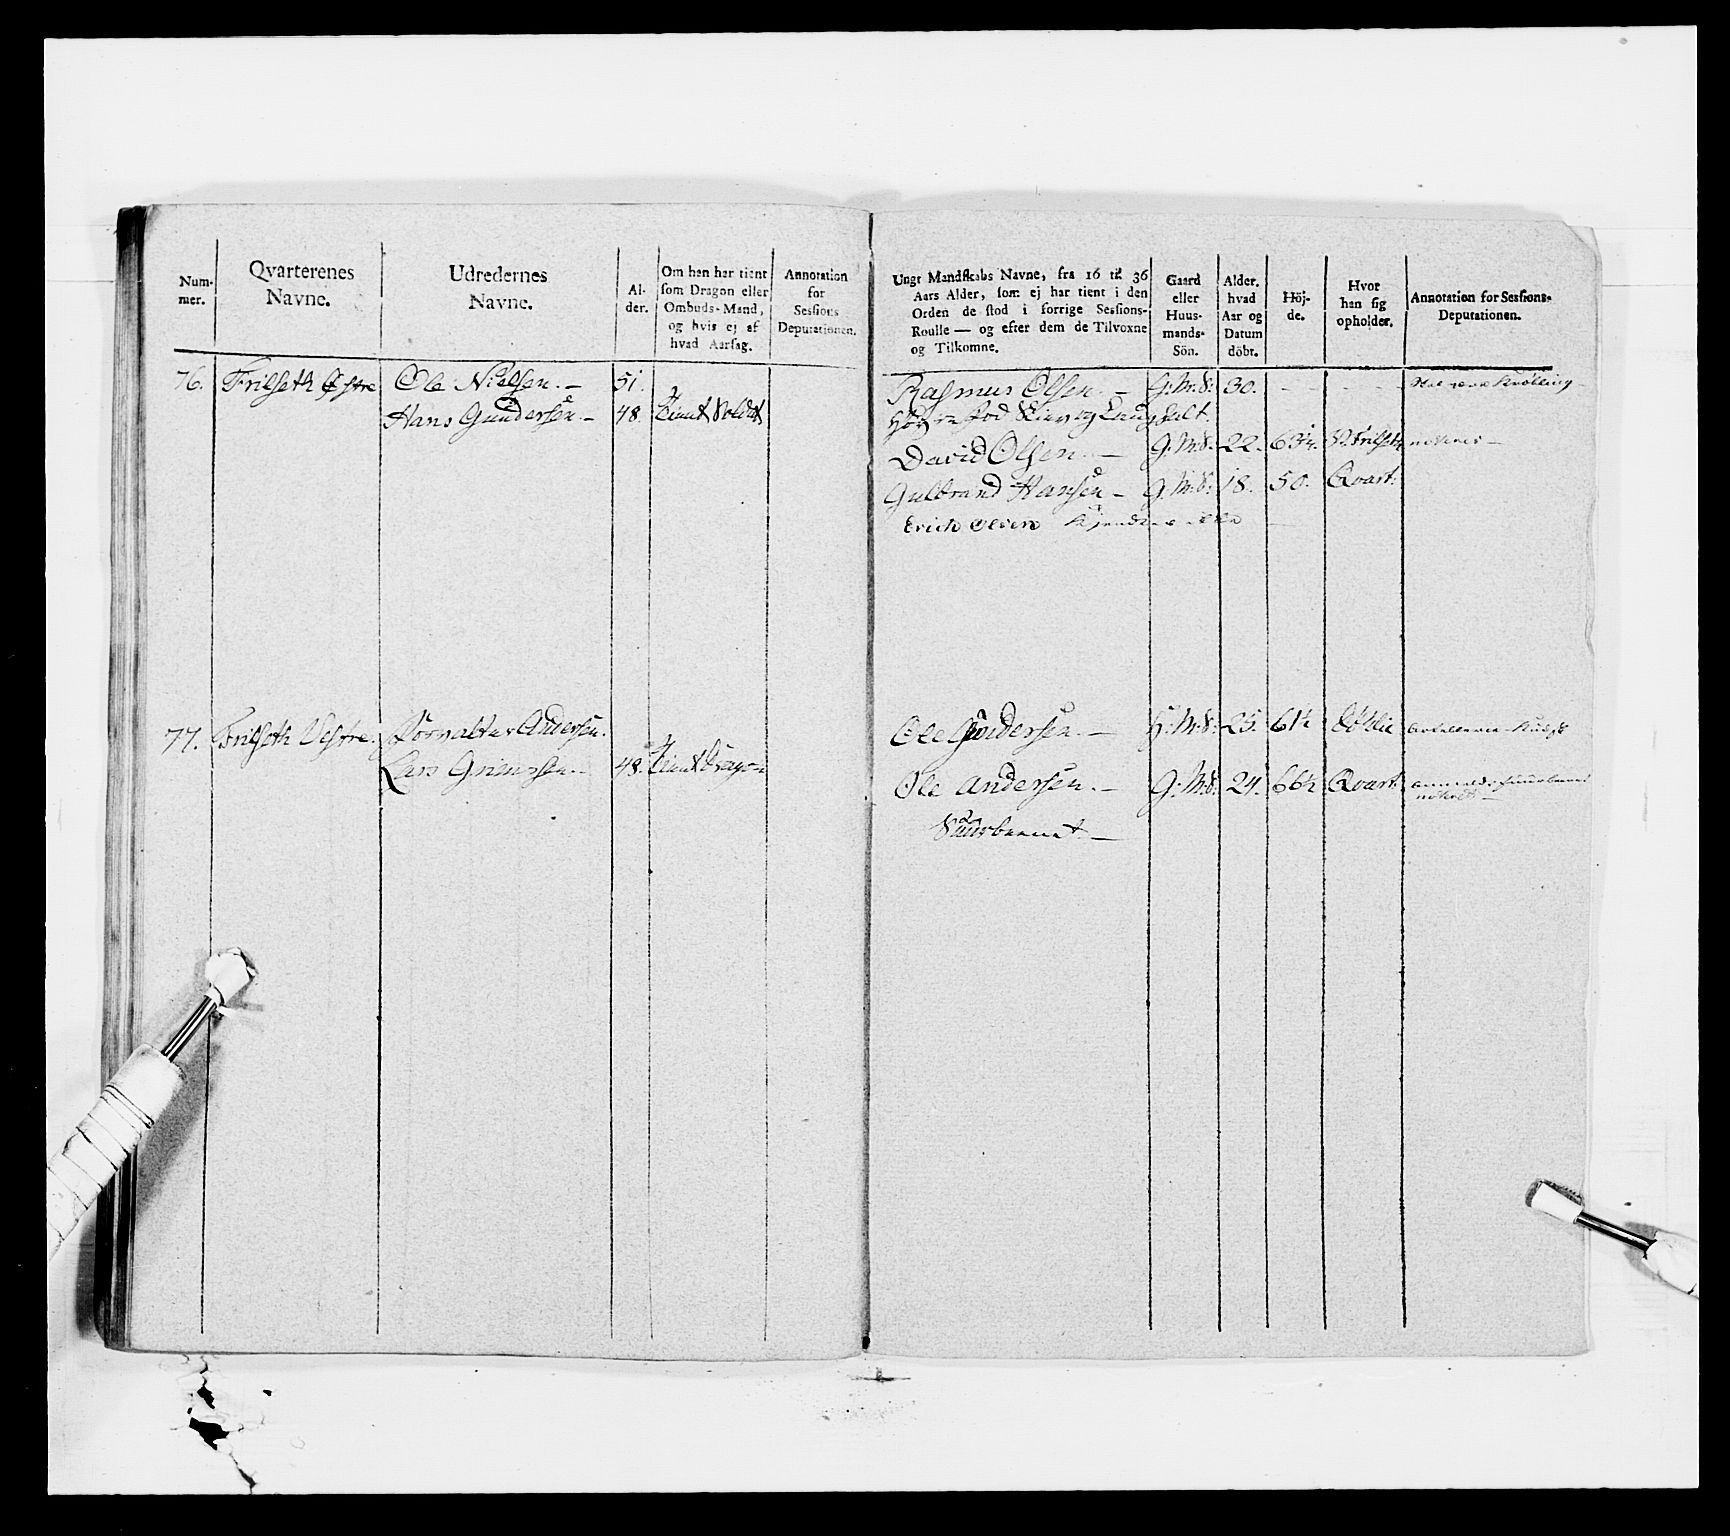 Num-
mer.
Qvarterenes
Navne.
Udredernes
Navne.
Al-
der.
Om han har tient
som Dragon eller
Ombuds-Mand,
og hvis ej af
hvad Aarsag.
Annotation
for
Sessions
Deputationen.
76. Frilseth Østre Ole Nielsen. — 51.
Hans Gundersen — 48. Tient Soldat
77. Frilseth Vestre. Andersen.
Lars 48. Tient Dragon
Ungt Mandskabs Navne, fra 16 til 36
Aars Alder, som ej har tient i den
Orden de stod i forrige Sessions-
Roulle — og efter dem de Tilvoxne
og Tilkomne.
Gaard
eller
Huus-
mands-
Sön.
Alder,
hvad
Aar og
Datum
döbt.
Höj-
de.
Hvor
han sig
opholder.
Annotation for Sessions-
Deputationen.
Rasmus Olsen. — G:M:S: 30. — — — —
Høyre fod
David Olsen. — G:M:S: 22. Frilseth
Gulbrand Hansen — G:M:S: 18. 50. Qvart:
Erich
Ole Gundersen. — H:M:S: 25. 61½
Ole Andersen. — G:M:S: 24. 66½ Qvart: